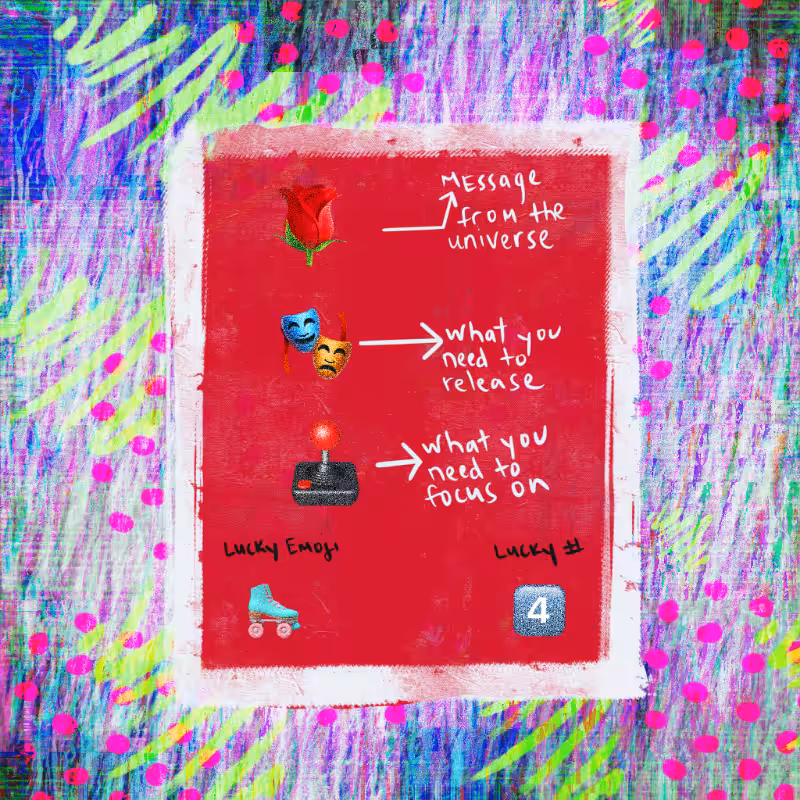 Message
from the
universe
what you
need to
release
what you
need to
focus on
Lucky Emoji
Lucky #
4